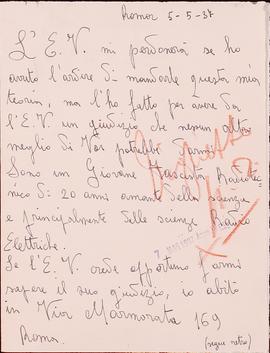 Roma 5-5-37
L'E.V. mi perdonerà se ho
avuto l'ardire di mandarle questa mia
teoria, ma l'ho fatto per avere da
l'E.V. un giudizio che nessun altro
meglio di Voi potrebbe darmi.
Sono un Giovane Fascista Radiotec-
nico di 20 anni amante delle scienze
e principalmente delle scienze Radio
Elettriche.
Se l'E.V. crede opportuno farmi
sapere il suo giudizio, io abito
in Via Marmorata 169
Roma. (segue retro)